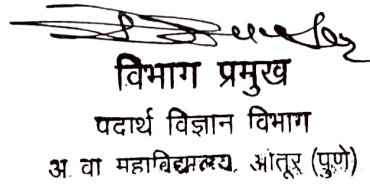 विभाग प्रमुख
पदार्थ विज्ञान विभाग
अ. वा महाविद्यालय, ओतूर (पुणे)